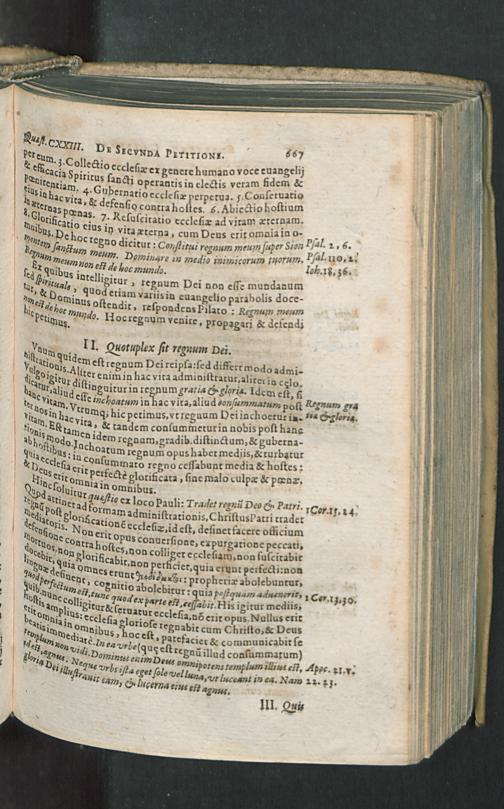 Quæst. CXXIII. DE SECVNDA PETITIONE. 667
per eum. 3. Collectio ecclesiæ ex genere humano voce euangelij
& efficacia Spiritus sancti operantis in electis veram fidem &
pœnitentiam. 4. Gubernatio ecclesiæ perpetua. 5. Conseruatio
eius in hac vita, & defensio contra hostes. 6. Abiectio hostium
in æternas pœnas. 7. Resuscitatio ecclesiæ ad vitam æternam.
8. Glorificatio eius in vita æterna, cum Deus erit omnia in o-
mnibus. De hoc regno dicitur: Constitui regnum meum super Sion Psal. 2, 6.
montem sanctum meum. Dominare in medio inimicorum tuorum. Psal. 110, 2.
Regnum meum non est de hoc mundo. Ioh. 18. 36.
Ex quibus intelligitur, regnum Dei non esse mundanum
sed spirituale, quod etiam variis in euangelio parabolis doce-
tur, & Dominus ostendit, respondens Pilato: Regnum meum
non est de hoc mundo. Hoc regnum venire, propagari & defendi
hic petimus.
II. Quotuplex sit regnum Dei.
Vnum quidem est regnum Dei reipsa: sed differt modo admi-
nistrationis. Aliter enim in hac vita administratur, aliter in cælo.
Vulgo igitur distinguitur in regnum gratiæ & gloriæ. Idem est, si
dicatur, aliud esse inchoatum in hac vita, aliud consummatum post Regnum gra
hanc vitam. Vtrumq; hic petimus, vt regnum Dei inchoetur in- tiæ & gloriæ.
ter nos in hac vita, & tandem consummetur in nobis post hanc
vitam. Est tamen idem regnum, gradib. distinctum, & guberna-
tionis modo. Inchoatum regnum opus habet mediis, & turbatur
ab hostibus: in consummato regno cessabunt media & hostes:
quia ecclesia erit perfectè glorificata, sine malo culpæ & pœnæ,
& Deus erit omnia in omnibus.
Hinc soluitur quæstio ex loco Pauli: Tradet regnũ Deo & Patri. 1 Cor. 15, 24.
Quod attinet ad formam administrationis, Christus Patri tradet
regnũ post glorificationẽ ecclesiæ, id est, desinet facere officium
mediatoris. Non erit opus conuersione, expurgatione peccati,
defensione contra hostes, non colliget ecclesiam, non suscitabit
mortuos, non glorificabit, non perficiet, quia erunt perfecti: non
docebit, quia omnes erunt : prophetiæ abolebuntur,
linguæ desinent, cognitio abolebitur: quia postquam aduenerit,
quod perfectum est, tunc quod ex parte est, cessabit. His igitur mediis, 1 Cor. 13.
quib. nunc colligitur & seruatur ecclesia, nõ erit opus. Nullus erit
hostis amplius: ecclesia gloriose regnabit cum Christo, & Deus
erit omnia in omnibus, hoc est, patefaciet & communicabit se
beatis immediatè. In ea vrbe (quę est regnũ illud consummatum)
templum non vidi. Dominus enim Deus omnipotens templum illius est, Apoc. 21. v.
id est, agnus. Neque vrbs ista eget sole vel luna, vt luceant in ea. Nam 22. 23.
gloria Dei illustrauit eam, & lucerna eius est agnus.
III. Quis